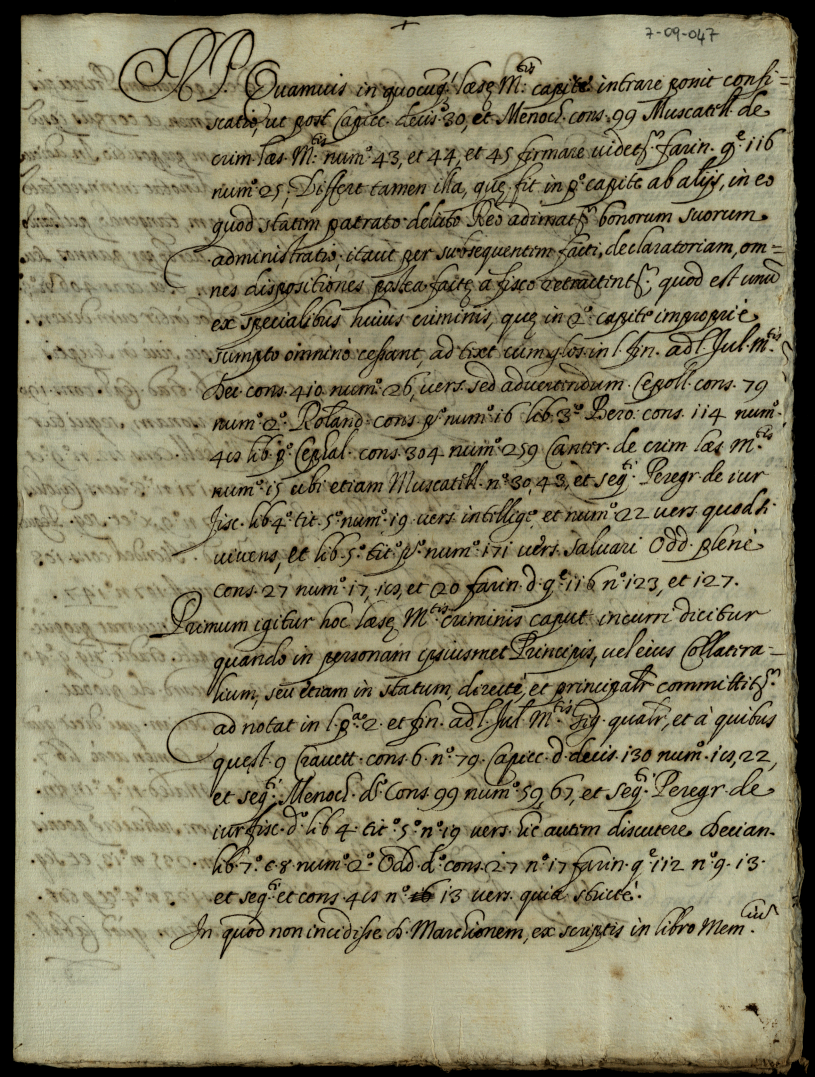 +
7-09-047
Quamuis in quocuq; læsę M.tis capite intrare possit confi=
scatio, ut post Capicc. decis.º 30, et Menoch. cons. 99 Muscatill. de
crim læs. M.tis num.º 43, et 44, et 45 firmare videt.r farin. q.e 116
num.º 25, Differt tamen illa, quę fit in p.º capite ab alijs, in eo
quod statim patrato delicto Reo adimat.r bonorum suorum
administratio, itaut per subsequentem facti, declaratoriam, om=
nes dispositiones postea factę a fisco retractent.r, quod est unū
ex specialibus huius criminis, quę in 2.º capite impropriè
sumpto omninò cessant, ad text cum glos. in l. fin. ad l. Jul. M.tis
Dec. cons. 410 num.º 26, vers. sed advertendum. Cepoll. cons. 79
num.º 2.º Roland. cons. p.º num.º 16 lib. 3.º Bero. cons. 114 num.º
lib. p.º Cephal. cons. 304 num.º 259 Canter. de crim læs M.tis
num.º 15 ubi etiam Muscatill. n.º 30, 43, et seq.ti Peregr. de iur
fisc. lib. 4.º tit. 5.º num.º 19 vers. intellige, et num.º 22 vers. quod si
vivens, et lib. 5.º tit.º p.º num.º 171 vers. salvari Odd. plenè
cons. 27 num.º 17, et 20 farin. d. q.e 116 n.º 123, et 127.
Primum igitur hoc læsæ M.tis criminis caput incurri dicitur
quando in personam ipsiusmet Principis, vel eius Collatera=
lium, seu etiam in statum, directè, et principalr committit.r
ad notat in l. p.a 2. et fin. ad l. Jul. M.tis Gig. qualr, et à quibus
quest. 9 Cravett. cons. 6 n.º 79. Capicc. d. decis. 130 num.º 22,
et seq.ti Menoch. d.º cons. 99 num.º 59, 67, et seq.ti Peregr. de
iur fisc. d.º lib 4. tit.º 5.º n.º 19 vers. hic autem discutere Decian.
lib. 7.º c. 8 num.º 2.º Odd. d.º cons. 27 n.º 17 farin. q.e 112 n.º 9. 13.
et seq.ti et cons n.º 13 vers. quia strictè.
In quod non incidisse d. Marchionem, ex scriptis in libro Mem.